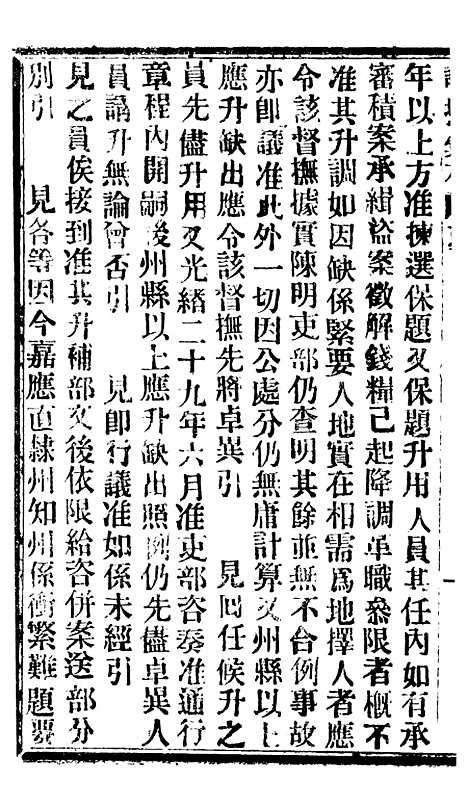 年以上方准揀選保題又保題升用人員其任內如有承
審積案承緝盜案徵解錢糧已起降調革職叅限者槪不
准其升調如因缺係緊要人地實在相需爲地擇人者應
令該督撫據實陳明吏部仍查明其餘並無不合例事故
亦卽議准此外一切因公處分仍無庸計算又州縣以上
應升缺出應令該督撫先將卓異引　見囘任候升之
員先儘升用又光緒二十九年六月准吏部咨奏准通行
章程內開嗣後州縣以上應升缺出照例仍先儘卓異人
員請升無論曾否引　見卽行議准如係未經引
見之員俟接到准其升補部文後依限給咨併案送部分
別引　見各等因今嘉應直隸州知州係衝繁難題要